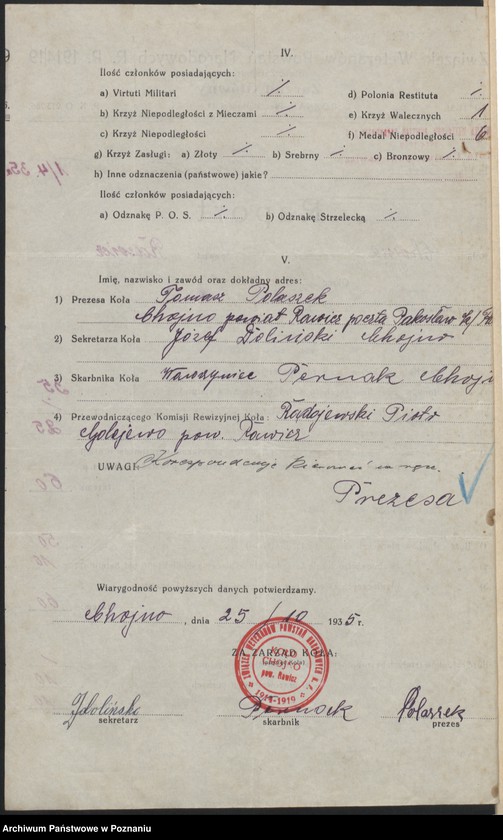 IV.
Ilość członków posiadających:
a) Virtuti Militari ·/.
d) Polonia Restituta ·/.
b) Krzyż Niepodległości z Mieczami ·/.
e) Krzyż Walecznych 1
c) Krzyż Niepodległości ·/.
f) Medal Niepodległości 6
g) Krzyż Zasługi: a) Złoty ·/. b) Srebrny ·/. c) Bronzowy ·/.
h) Inne odznaczenia (państwowe) jakie?
Ilość członków posiadających:
a) Odznakę P. O. S. ·/. b) Odznakę Strzelecką ·/.
V.
Imię, nazwisko i zawód oraz dokładny adres:
1) Prezesa Koła Tomasz Polaszek
Chojno powiat Rawicz poczta Pakosław
2) Sekretarza Koła Józef Doliński Chojno
3) Skarbnika Koła Wawrzyniec Piernak Chojn
4) Przewodniczącego Komisji Rewizyjnej Koła: Radojewski Piotr
Golejewo pow. Rawicz
UWAGI Korespondencje kierować na ręce
Prezesa
Wiarygodność powyższych danych potwierdzamy.
Chojno, dnia 25 / 10 1935 r.
ZA ZARZĄD KOŁA:
ZWIĄZEK WETERANÓW POWSTAŃ NARODOWYCH R. P.
1914-1919
KOŁO
CHOJNO
pow. Rawicz
JDoliński
sekretarz
Piernack
skarbnik
Polaszek
prezes
Archiwum Państwowe w Poznaniu